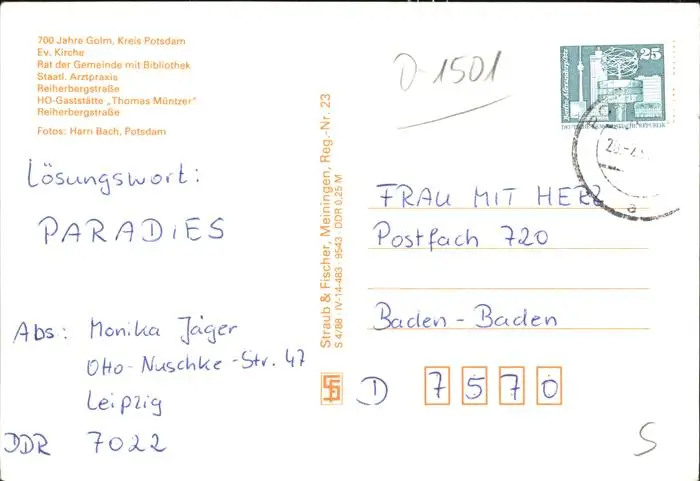 700 Jahre Golm, Kreis Potsdam
Ev. Kirche
Rat der Gemeinde mit Bibliothek
Staatl. Arztpraxis
Reiherbergstraße
HO-Gaststätte „Thomas Müntzer"
Reiherbergstraße
Fotos: Harri Bach, Potsdam
Lösungswort:
PARADIES
Abs: Monika Jäger
Otto-Nuschke-Str. 47
Leipzig
DDR 7022
Straub & Fischer, Meiningen, Reg.-Nr. 23
S 4/88 IV-14-483 · 9543 DDR 0,25 M
D-1501
25
Berlin, Alexanderplatz
20.-4.
a
FRAU MIT HERZ
Postfach 720
Baden-Baden
D 7570
S